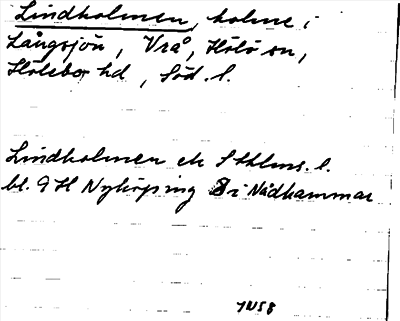 Lindholmen, holme i
Långsjön, Vrå, Hölö sn,
Hölebo hd, Söd. l.
Lindholmen ek Sthlms. l.
bl. 9H Nyköping i Nådhammar